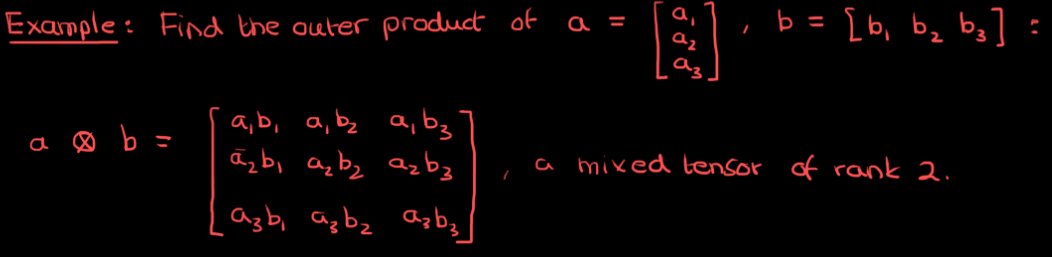 Example: Find the outer product of a = [a₁ a₂ a₃] , b = [b₁ b₂ b₃] :
a ⊗ b = [a₁b₁ a₁b₂ a₁b₃
a₂b₁ a₂b₂ a₂b₃
a₃b₁ a₃b₂ a₃b₃] , a mixed tensor of rank 2.